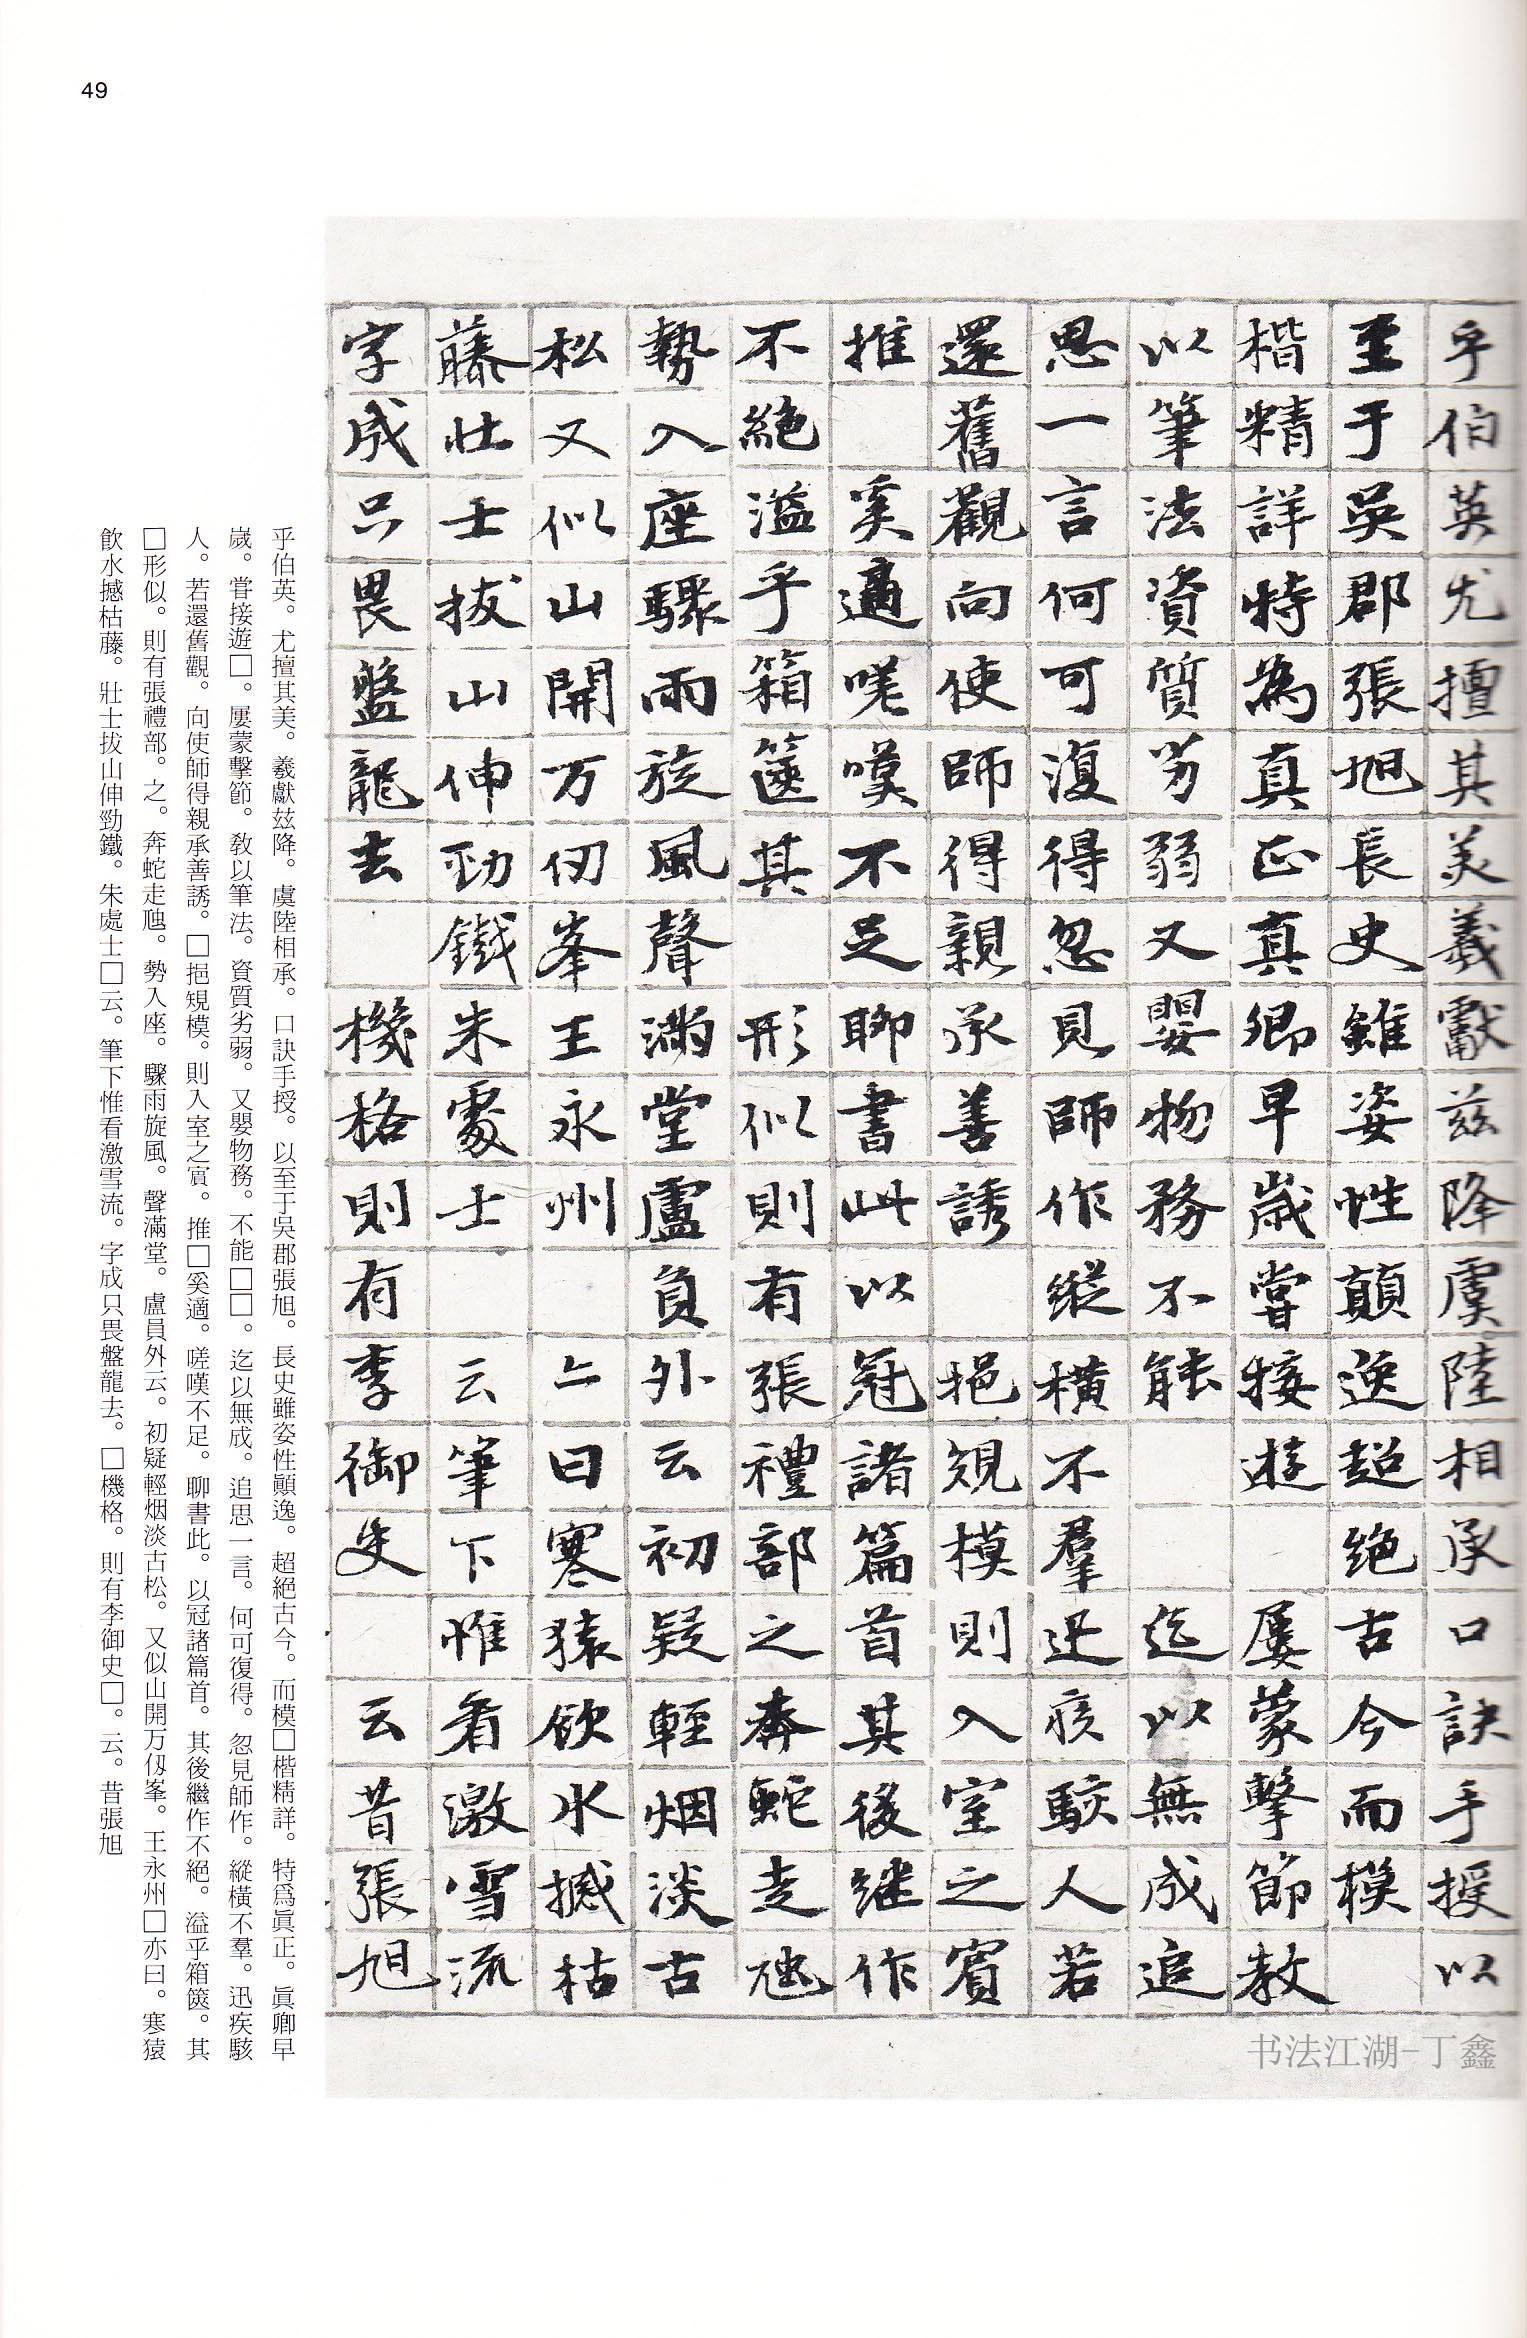 49
乎伯英尤擅其美羲獻茲降虞陸相承口訣手授以
至于吳郡張旭長史雖姿性顛逸超絕古今而模
楷精詳特為真正真卿早歲嘗接遊屢蒙擊節教
以筆法資質劣弱又嬰物務不能迄以無成追
思一言何可復得忽見師作縱橫不羣迅疾駭人若
還舊觀向使師得親承善誘挹規模則入室之賓
推奚適嗟嘆不足聊書此以冠諸篇首其後繼作
不絕溢乎箱篋其形似則有張禮部之奔蛇走虺
勢入座驟雨旋風聲滿堂盧員外云初疑輕烟淡古
松又似山開万仞峯王永州亦曰寒猿飲水撼枯
藤壯士拔山伸勁鐵朱處士云筆下惟看激雪流
字成只畏盤龍去機格則有李御史云昔張旭
乎伯英。尤擅其美。羲獻玆降。虞陸相承。口訣手授。以至于吳郡張旭。長史雖姿性顚逸。超絕古今。而模□楷精詳。特爲眞正。眞卿早
歲。嘗接遊□。屢蒙擊節。教以筆法。資質劣弱。又嬰物務。不能□□。迄以無成。追思一言。何可復得。忽見師作。縱橫不羣。迅疾駭
人。若還舊觀。向使師得親承善誘。□挹規模。則入室之賓。推□奚適。嗟嘆不足。聊書此。以冠諸篇首。其後繼作不絕。溢乎箱篋。其
□形似。則有張禮部。之。奔蛇走虺。勢入座。驟雨旋風。聲滿堂。盧員外云。初疑輕烟淡古松。又似山開万仭峯。王永州□亦曰。寒猿
飮水撼枯藤。壯士拔山伸勁鐵。朱處士□云。筆下惟看激雪流。字成只畏盤龍去。□機格。則有李御史□。云。昔張旭
书法江湖-丁鑫